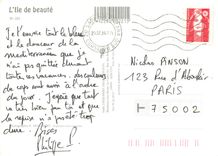 L'Ile de beauté
Je t'envoie tout le bleu
et la douceur de la
méditerranée que je
n'ai pas quittée
toutes ces vacances.
du cap sont à l'ordre
du jour. J'espère que tout
va bien pour toi et que
la reprise n'a pas été trop
dure.
Bises
Philippe P.
Nicolas PINSON
123 Rue d'Aboukir
PARIS
75002